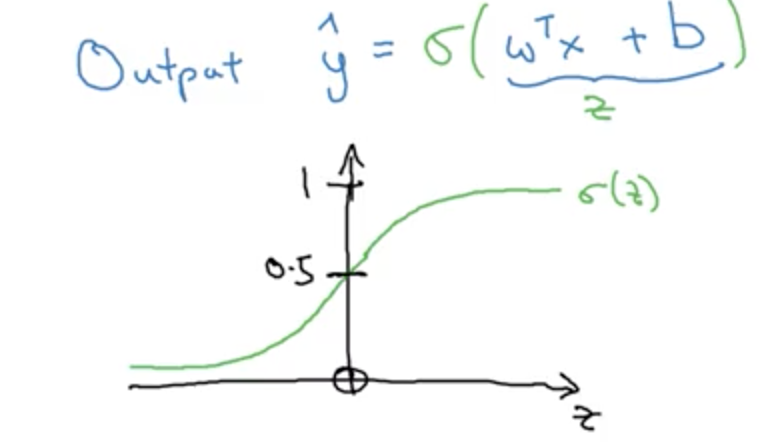 Output ŷ = σ(wᵀx + b)
z
1
σ(z)
0.5
z